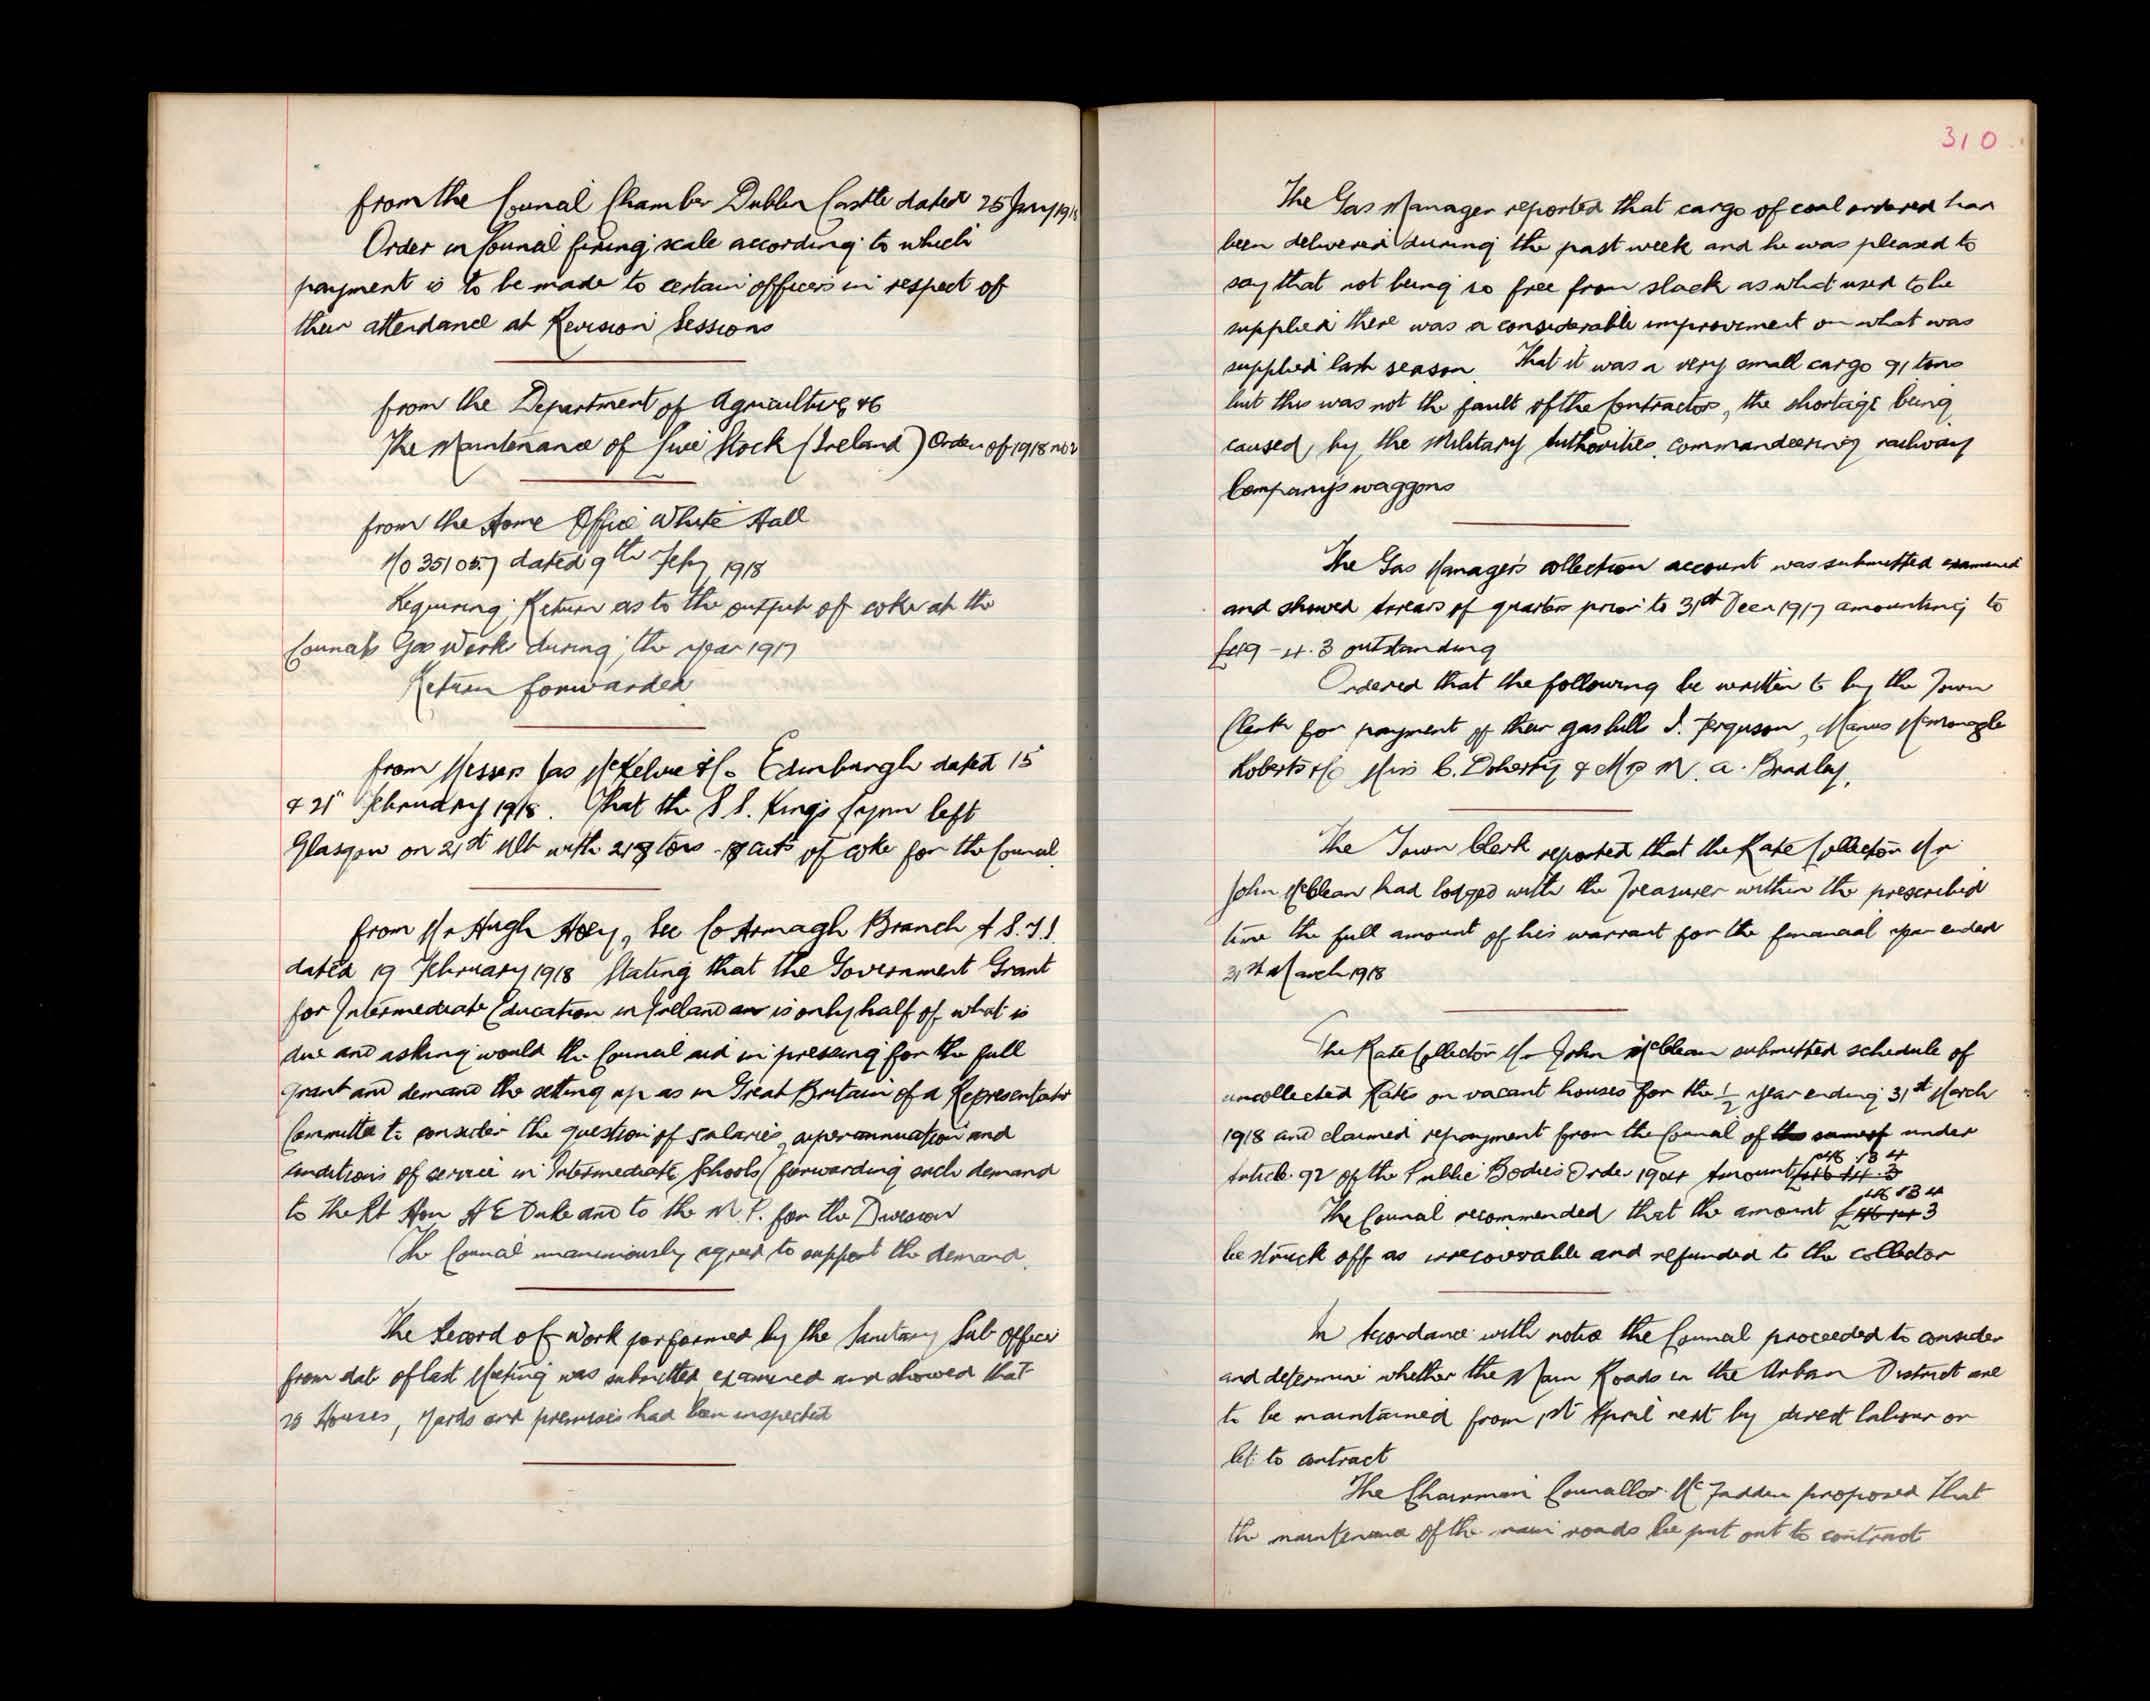 from the Council Chamber Dublin Castle dated 25 Jany 1918
Order in Council fixing scale according to which
payment is to be made to certain officers in respect of
their attendance at Revision Sessions
from the Department of Agriculture &c
The Maintenance of Live Stock (Ireland) Order of 1918 no 2
from the Home Office White Hall
No 351057 dated 9th Feby 1918
Requiring Return as to the output of coke at the
Councils Gas Work during the year 1917
Return forwarded.
from Messrs Jas McKelvie & Co Edinburgh dated 15
& 21st February 1918. That the S.S. Kings Lynn left
Glasgow on 21st Ult with tons cuts of coke for the Council.
from Mr Hugh Hoey, Sec Co Armagh Branch A S.T.I.
dated 19 February 1918 Stating that the Government Grant
for Intermediate Education in Ireland is only half of what is
due and asking would the Council aid in pressing for the full
grant and demand the setting up as in Great Britain of a Representative
Committee to consider the question of salaries, superannuation and
conditions of service in Intermediate Schools forwarding such demand
to the Rt Hon H E Duke and to the M.P. for the Division
The Council unanimously agreed to support the demand.
The Record of Work performed by the Sanitary Sub Officer
from date of last Meeting was submitted examined and showed that
Houses, yards and premises had been inspected
310
The Gas Manager reported that cargo of coal ordered has
been delivered during the past week and he was pleased to
say that not being so free from slack as what used to be
supplied there was a considerable improvement on what was
supplied last season. That it was a very small cargo 91 tons
but this was not the fault of the Contractors, the shortage being
caused by the Military Authorities commandeering railway
Company's waggons
The Gas Manager's collection account was submitted examined
and showed Arrears of quarters prior to 31st Decr 1917 amounting to
4. 3 outstanding
Ordered that the following be written to by the Town
Clerk for payment of their gas bills J. Ferguson, Manus McMonagle
Roberts & Co Miss C. Doherty & Mrs M. A. Bradley.
The Town Clerk reported that the Rate Collector Mr
John McClean had lodged with the Treasurer within the prescribed
time the full amount of his warrant for the financial year ended
31st March 1918
The Rate Collector Mr John McClean submitted schedule of
uncollected Rates on vacant houses for the ½ year ending 31st March
1918 and claimed repayment from the Council of the same under
Article 92 of the Public Bodies Order 1904 Amount £46 14. 3 £46 . 13 4
The Council recommended that the amount £46 14 3 46 13 4
be struck off as irrecoverable and refunded to the collector
In Accordance with notice the Council proceeded to consider
and determine whether the Main Roads in the Urban District are
to be maintained from 1st April next by direct labour or
let to contract
The Chairman Councillor McFadden proposed that
the maintenance of the main roads be put out to contract